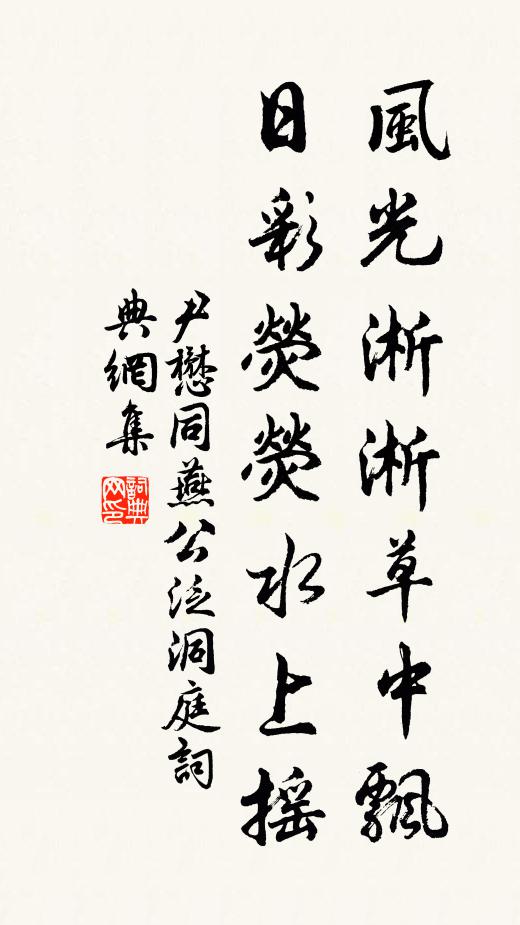 風光淅淅草中飄
日彩熒熒水上摇
尹懋同燕公泛洞庭詞
典網集
詞典网印